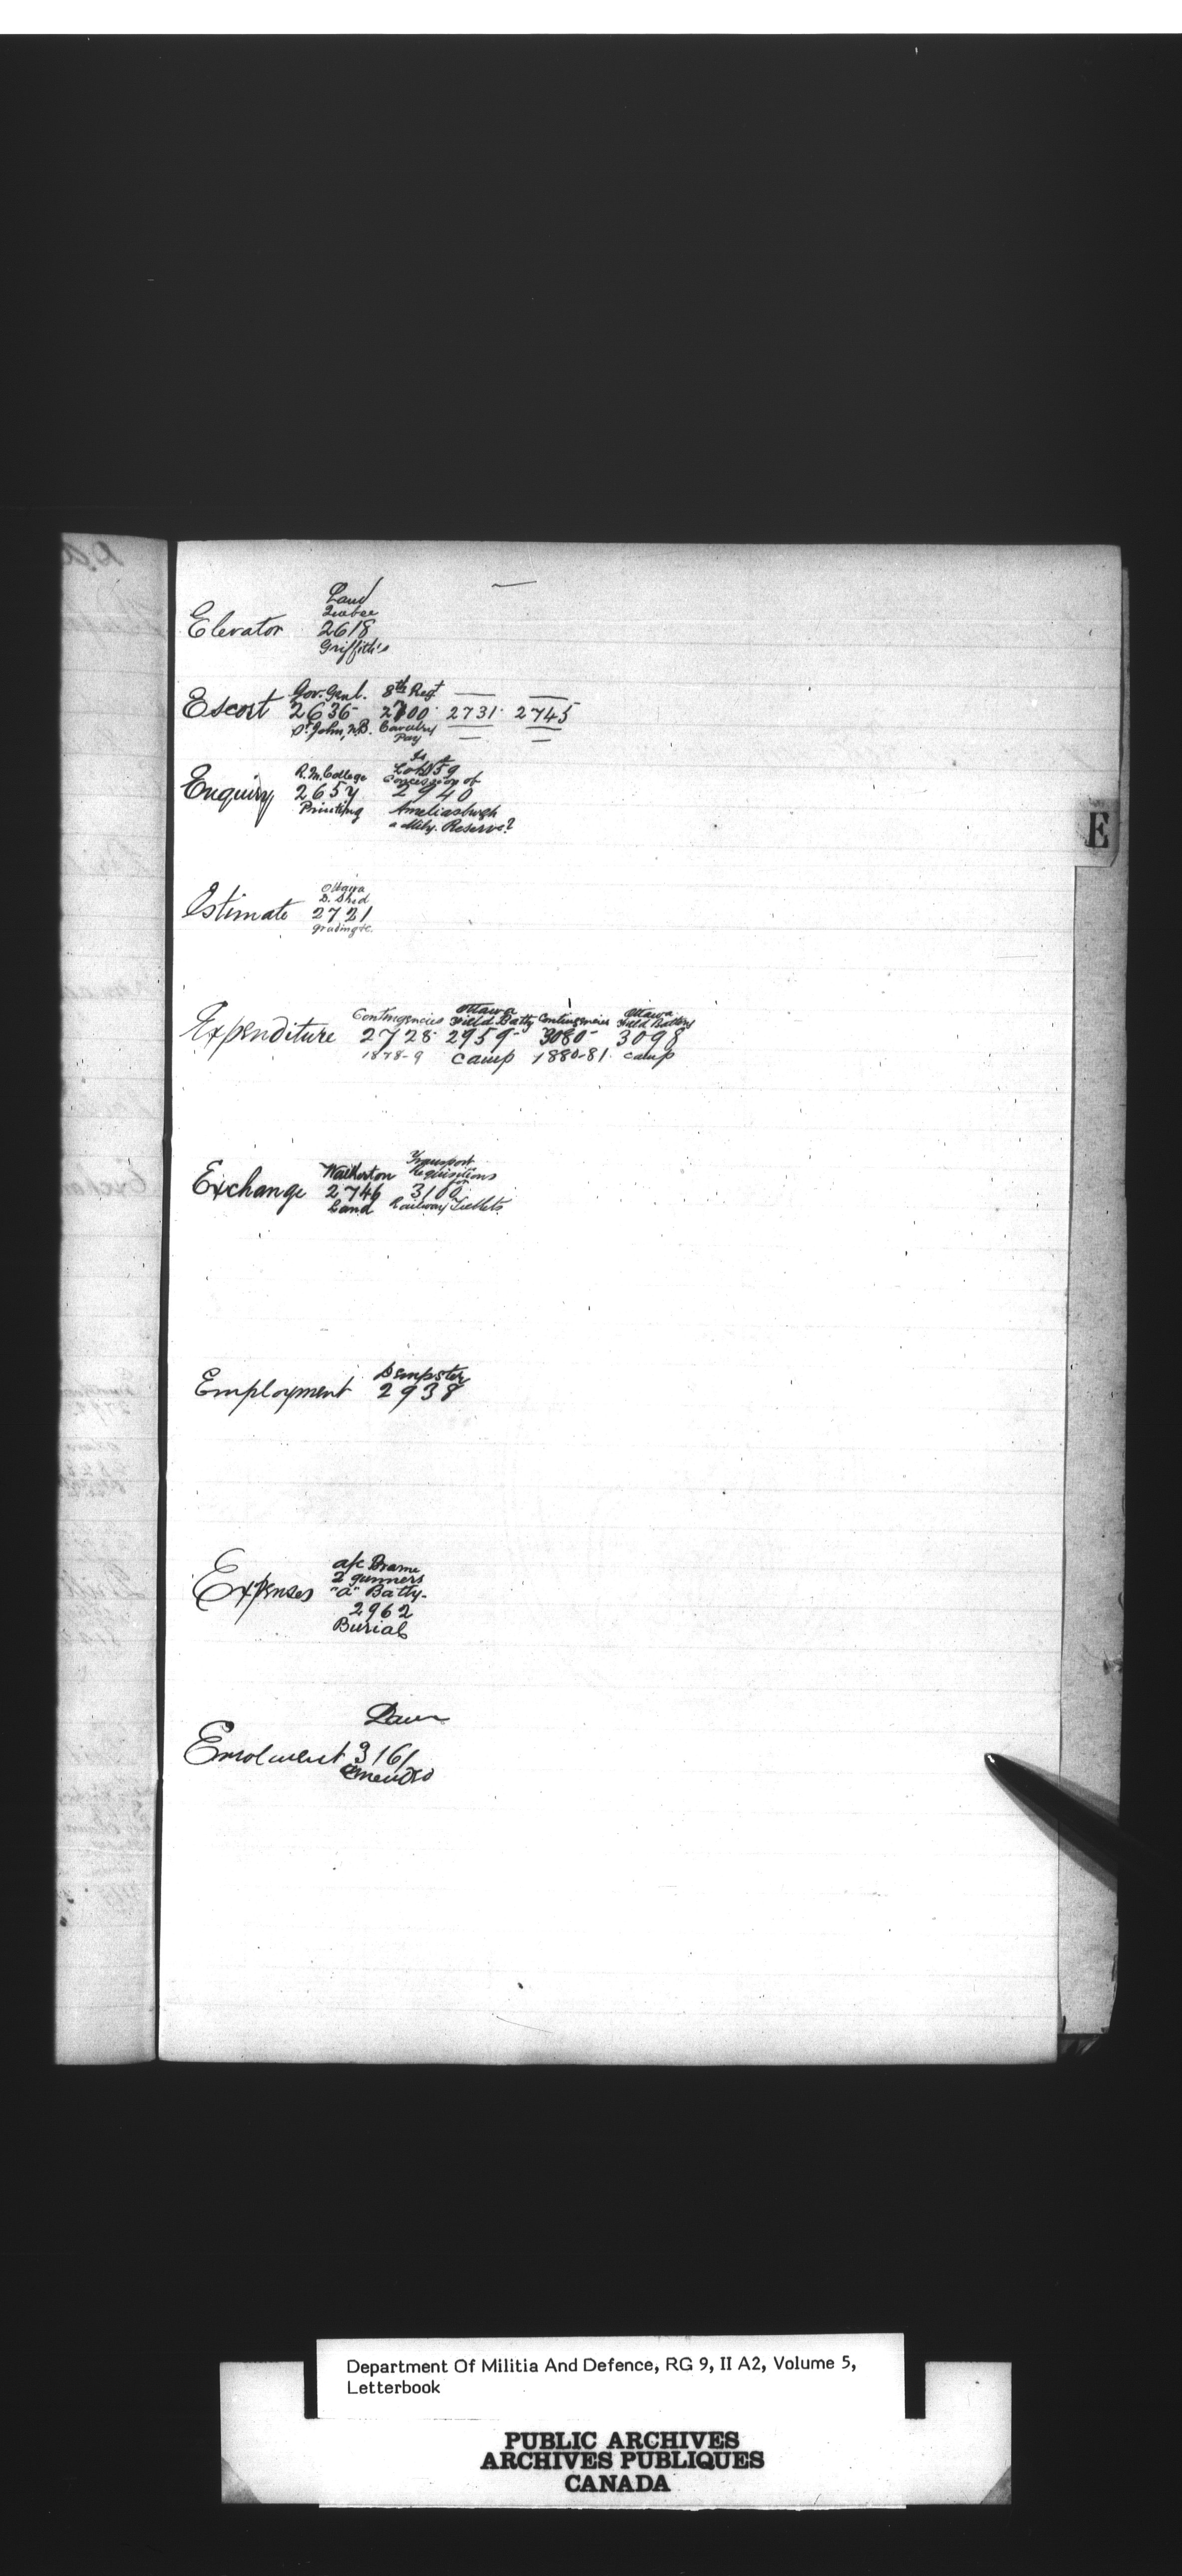 Land
Quebec
Elevator 2618
Griffith's
Gov. Genl. 8th Regt
Escort 2636 2700 2731 2745
St. John, N.B. Cavalry
Pay
Is
R. M. College Lot No 59
Concession of
Enquiry 2654 2940
Printing Ameliasburgh
a Mily. Reserve?
E
Ottawa
D. Shed
Estimate 2721
grading &c.
Contingencies Ottawa Field Batty Contingencies Ottawa Field Battery
Expenditure 2728 2959 3080 3098
1878-9 Camp 1880-81 Camp
Transport
Walkerton Requisitions
for
Exchange 2746 3100
Land Railway Tickets
Dempster
Employment 2938
a/c Brame
2 gunners
Expenses "A" Batty.
2962
Burial
Enrolment 3161
Department Of Militia And Defence, RG 9, II A2, Volume 5,
Letterbook
PUBLIC ARCHIVES
ARCHIVES PUBLIQUES
CANADA